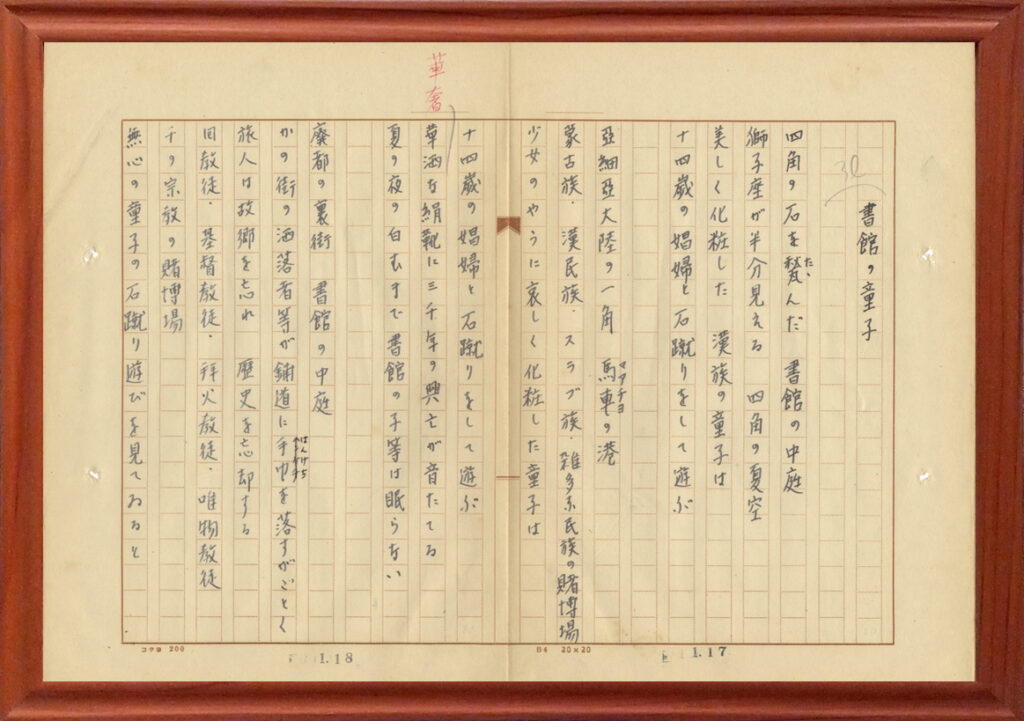 30
書館の童子
四角の石を甃んだ　書館の中庭
たゝ
獅子座が半分見える　四角の夏空
美しく化粧した　漢族の童子は
十四歳の娼婦と石蹴りをして遊ぶ
亞細亞大陸の一角　馬車の港
マアチヨ
蒙古族・漢民族・スラブ族・雑多な民族の賭博場
少女のやうに哀しく化粧した童子は
十四歳の娼婦と石蹴りをして遊ぶ
華奢
華洒な絹靴に三千年の興亡が音たてる
夏の夜の白むまで書館の子等は眠らない
廃都の裏街　書館の中庭
かの街の洒落者等が鋪道に手巾を落すがごとく
はんけち
旅人は故郷を忘れ　歴史を忘却する
回教徒・基督教徒・拝火教徒・唯物教徒
千の宗教の賭博場
無心の童子の石蹴り遊びを見てゐると
1.17
B4 20×20
1.18
コクヨ 200